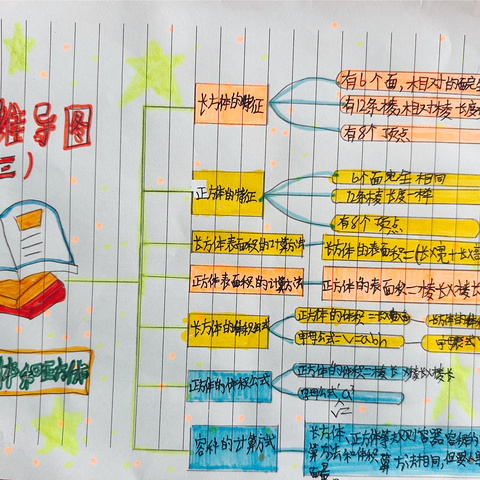 维导图
三）
长方体的特征
有6个面，相对的面完全
有12条棱，相对棱长度
有8个顶点
正方体的特征
6个面完全相同
12条棱长度一样
有8个顶点
长方体表面积的计算方法
长方体的表面积=(长×宽+长×高
正方体表面积的计算方法
正方体的表面积=棱长×棱长
长方体的体积公式
字母公式=V=abh
正方体的体积公式
正方体的体积=棱长×棱长×棱长
字母公式 a³
V=
容积的计算方式
长方体、正方体等
算方法和体积算方法相同，但要从里
面量